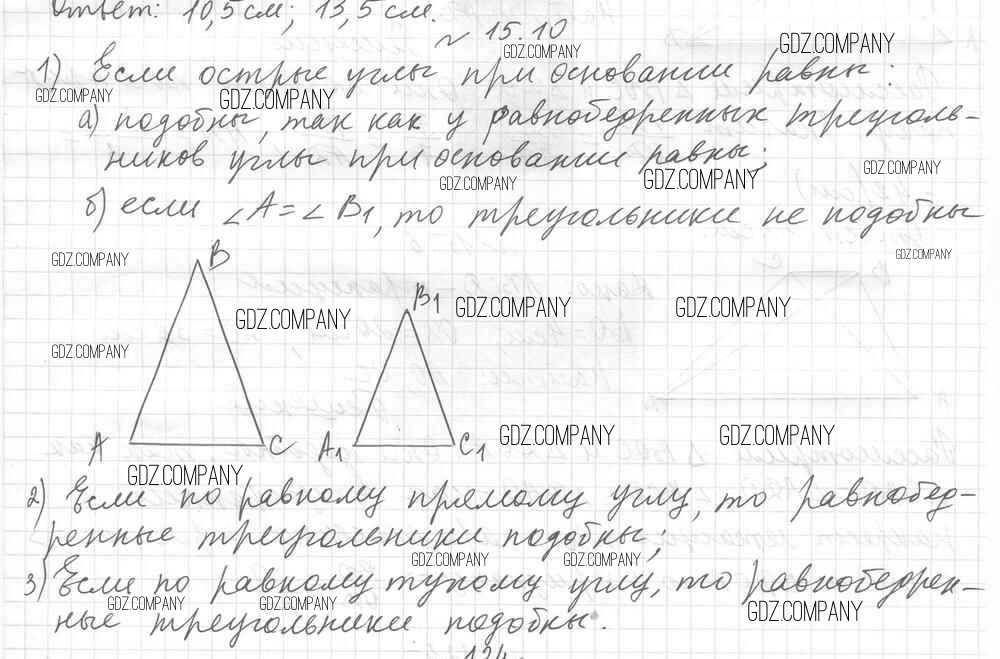 Ответ: 10,5 см; 13,5 см.
~ 15.10
GDZ.COMPANY
GDZ.COMPANY
1) Если острые углы при основании равны:
GDZ.COMPANY
GDZ.COMPANY
а) подобны, так как у равнобедренных треуголь-
ников углы при основании равны;
GDZ.COMPANY
GDZ.COMPANY
GDZ.COMPANY
б) если ∠A = ∠B1, то треугольники не подобны
GDZ.COMPANY
B
GDZ.COMPANY
B1
GDZ.COMPANY
GDZ.COMPANY
GDZ.COMPANY
GDZ.COMPANY
A
C
A1
C1
GDZ.COMPANY
GDZ.COMPANY
GDZ.COMPANY
2) Если по равному прямому углу, то равнобед-
ренные треугольники подобны;
GDZ.COMPANY
GDZ.COMPANY
3) Если по равному тупому углу, то равнобедрен-
GDZ.COMPANY
GDZ.COMPANY
GDZ.COMPANY
ные треугольники подобны.